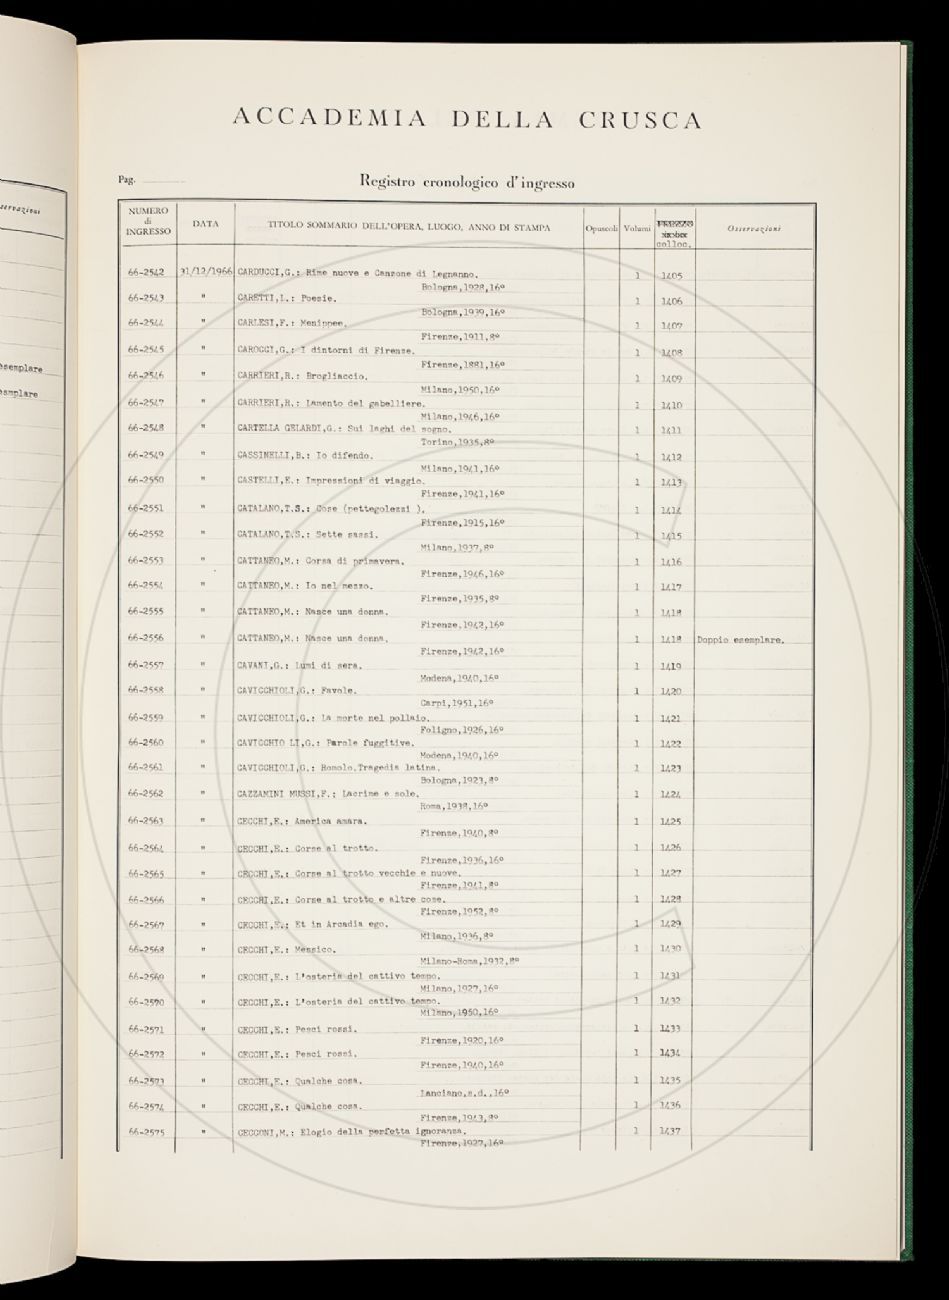 ACCADEMIA DELLA CRUSCA
Pag.
Registro cronologico d'ingresso
servazioni
esemplare
esemplare
NUMERO di INGRESSO DATA TITOLO SOMMARIO DELL'OPERA, LUOGO, ANNO DI STAMPA Opuscoli Volumi PREZZO colloc. Osservazioni
66-2542 31/12/1966 CARDUCCI,G.: Rime nuove e Canzone di Legnanno. 1 1405
Bologna,1928,16º
66-2543 " CARETTI,L.: Poesie. 1 1406
Bologna,1939,16º
66-2544 " CARLESI,F.: Menippee. 1 1407
Firenze,1911,8º
66-2545 " CAROCCI,G.: I dintorni di Firenze. 1 1408
Firenze,1881,16º
66-2546 " CARRIERI,R.: Brogliaccio. 1 1409
Milano,1950,16º
66-2547 " CARRIERI,R.: Lamento del gabelliere. 1 1410
Milano,1946,16º
66-2548 " CARTELLA GELARDI,G.: Sui laghi del sogno. 1 1411
Torino,1935,8º
66-2549 " CASSINELLI,B.: Io difendo. 1 1412
Milano,1941,16º
66-2550 " CASTELLI,E.: Impressioni di viaggio. 1 1413
Firenze,1941,16º
66-2551 " CATALANO,T.S.: Cose (pettegolezzi ). 1 1414
Firenze,1915,16º
66-2552 " CATALANO,T.S.: Sette sassi. 1 1415
Milano,1937,8º
66-2553 " CATTANEO,M.: Corsa di primavera. 1 1416
Firenze,1946,16º
66-2554 " CATTANEO,M.: Io nel mezzo. 1 1417
Firenze,1935,8º
66-2555 " CATTANEO,M.: Nasce una donna. 1 1418
Firenze,1942,16º
66-2556 " CATTANEO,M.: Nasce una donna. 1 1418 Doppio esemplare.
Firenze,1942,16º
66-2557 " CAVANI,G.: Lumi di sera. 1 1419
Modena,1940,16º
66-2558 " CAVICCHIOLI,G.: Favole. 1 1420
Carpi,1951,16º
66-2559 " CAVICCHIOLI,G.: La morte nel pollaio. 1 1421
Foligno,1926,16º
66-2560 " CAVICCHIO LI,G.: Parole fuggitive. 1 1422
Modena,1940,16º
66-2561 " CAVICCHIOLI,G.: Romolo.Tragedia latina. 1 1423
Bologna,1923,8º
66-2562 " CAZZAMINI MUSSI,F.: Lacrime e sole. 1 1424
Roma,1938,16º
66-2563 " CECCHI,E.: America amara. 1 1425
Firenze,1940,8º
66-2564 " CECCHI,E.: Corse al trotto. 1 1426
Firenze,1936,16º
66-2565 " CECCHI,E.: Corse al trotto vecchie e nuove. 1 1427
Firenze,1941,8º
66-2566 " CECCHI,E.: Corse al trotto e altre cose. 1 1428
Firenze,1952,8º
66-2567 " CECCHI,E.: Et in Arcadia ego. 1 1429
Milano,1936,8º
66-2568 " CECCHI,E.: Messico. 1 1430
Milano-Roma,1932,8º
66-2569 " CECCHI,E.: L'osteria del cattivo tempo. 1 1431
Milano,1927,16º
66-2570 " CECCHI,E.: L'osteria del cattivo tempo. 1 1432
Milano,1950,16º
66-2571 " CECCHI,E.: Pesci rossi. 1 1433
Firenze,1920,16º
66-2572 " CECCHI,E.: Pesci rossi. 1 1434
Firenze,1940,16º
66-2573 " CECCHI,E.: Qualche cosa. 1 1435
Lanciano,s.d.,16º
66-2574 " CECCHI,E.: Qualche cosa. 1 1436
Firenze,1943,8º
66-2575 " CECCONI,M.: Elogio della perfetta ignoranza. 1 1437
Firenze,1927,16º